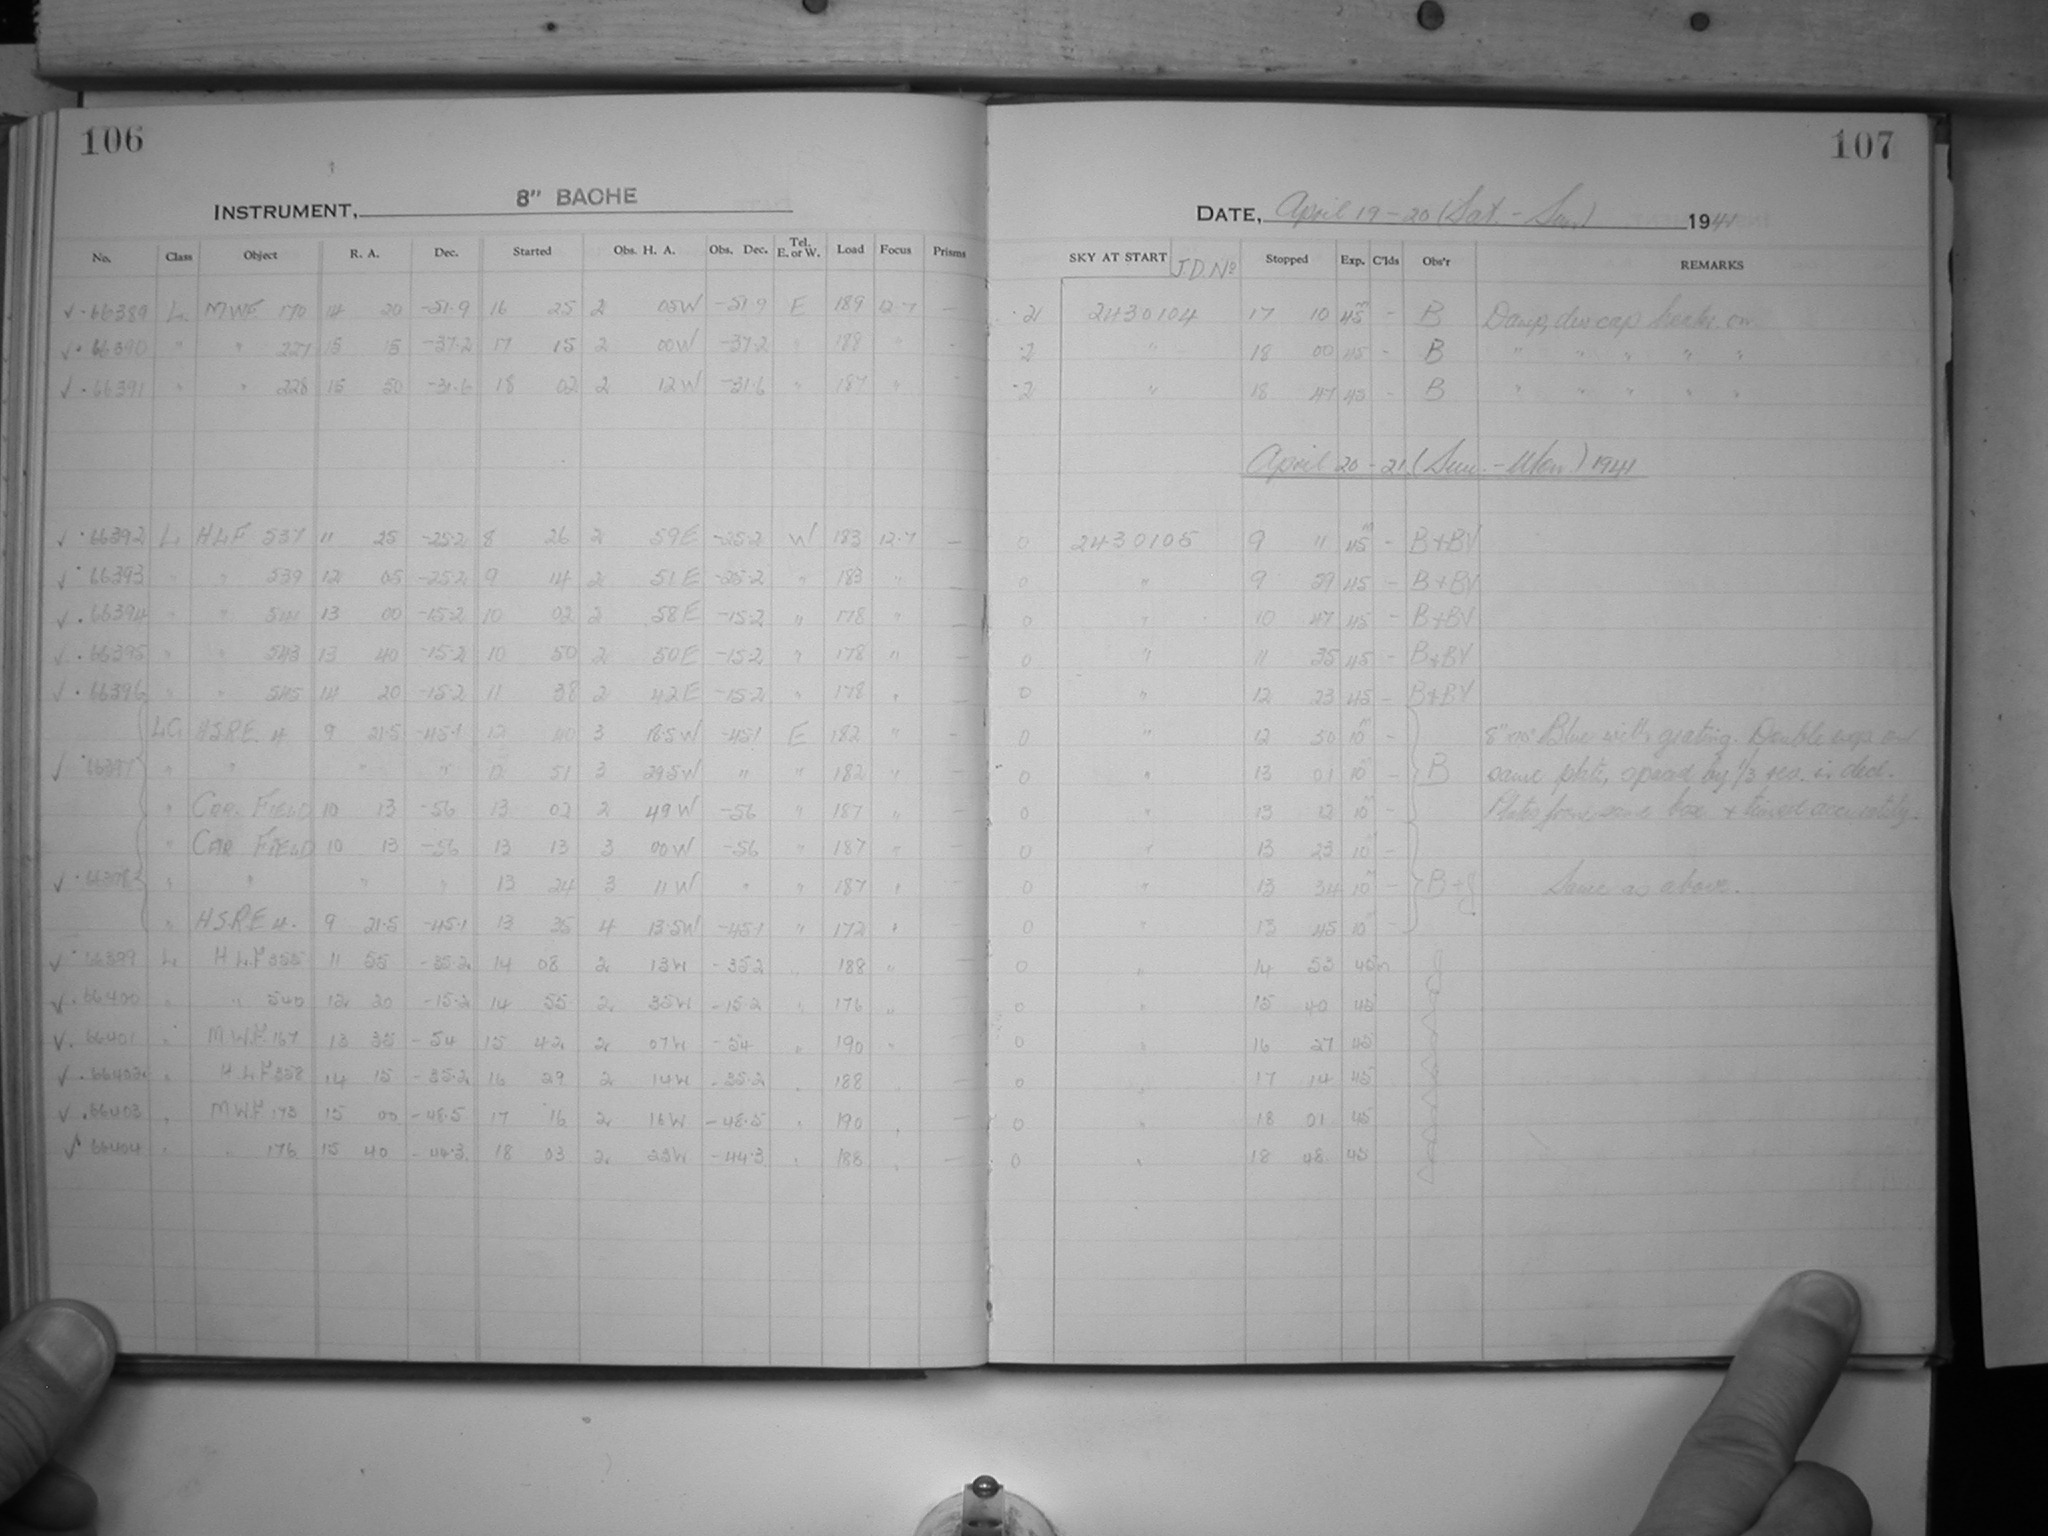 106
INSTRUMENT, 8" BACHE
No. Class Object R. A. Dec. Started Obs. H. A. Obs. Dec. Tel. E. or W. Load Focus Prisms
✓ · 66389 L MWF 170 14 20 -51.9 16 25 2 05W -51.9 E 189 12.7 —
✓ · 66390 " " 227 15 15 -37.2 17 15 2 00W -37.2 " 188 " -
✓ · 66391 " " 228 15 50 -31.6 18 02 2 12W -31.6 " 187 " -
✓ · 66392 L HLF 537 11 25 -25.2 8 26 2 59E -25.2 W 183 12.7 —
✓ · 66393 " " 539 12 05 -25.2 9 14 2 51E -25.2 " 183 " —
✓ · 66394 " " 541 13 00 -15.2 10 02 2 58E -15.2 " 178 " —
✓ · 66395 " " 543 13 40 -15.2 10 50 2 50E -15.2 " 178 " —
✓ · 66396 " " 545 14 20 -15.2 11 38 2 42E -15.2 " 178 " —
LG HSRE 4 9 21.5 -45.1 12 40 3 18.5W -45.1 E 182 " —
✓ · 66397 " " " " 12 51 3 29.5W " " 182 " —
" CAR. FIELD 10 13 -56 13 02 2 49W -56 " 187 " —
" CAR FIELD 10 13 -56 13 13 3 00W -56 " 187 " —
✓ · 66398 " " " " 13 24 3 11W " " 187 " —
" HSRE 4. 9 21.5 -45.1 13 35 4 13.5W -45.1 " 172 " —
✓ · 66399 L HLF 355 11 55 -35.2 14 08 2 13W -35.2 " 188 " —
✓ · 66400 " " 540 12 20 -15.2 14 55 2 35W -15.2 " 176 " —
✓ · 66401 " MWF 167 13 35 -54 15 42 2 07W -54 " 190 " —
✓ · 66402 " HLF 358 14 15 -35.2 16 29 2 14W -35.2 " 188 " —
✓ · 66403 " MWF 173 15 00 -48.5 17 16 2 16W -48.5 " 190 " —
✓ · 66404 " " 176 15 40 -44.3 18 03 2 23W -44.3 " 188 " —
107
DATE, April 19-20 (Sat. - Sun.) 1941
SKY AT START J.D. No Stopped Exp. C'lds Obs'r REMARKS
·21 2430104 17 10 45m - B Damp, dew cap heater on
·2 " 18 00 45 - B " " " " "
·2 " 18 47 45 - B " " " " "
April 20-21 (Sun. - Mon.) 1941
0 2430105 9 11 45m - B+BV
0 " 9 59 45 - B+BV
0 " 10 47 45 - B+BV
0 " 11 35 45 - B+BV
0 " 12 23 45 - B+BV
0 " 12 50 10m - Blue with grating. Double exp on
0 " 13 01 10m - B same plate, spread by 1/3 in decl.
0 " 13 12 10m - Plates from same box + timed accurately.
0 " 13 23 10m -
0 " 13 34 10m - B+J Same as above.
0 " 13 45 10m -
0 " 14 53 45m
0 " 15 40 45
0 " 16 27 45
0 " 17 14 45
0 " 18 01 45
0 " 18 48 45